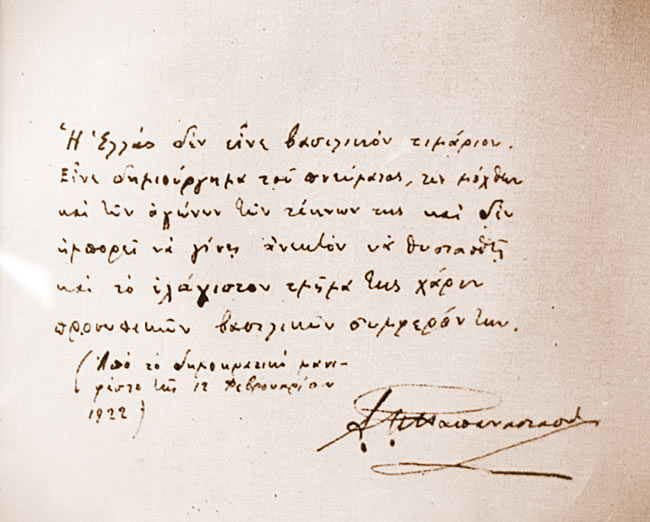 Ἡ Ἑλλάς δέν εἶνε βασιλικόν τιμάριον.
Εἶνε δημιούργημα τοῦ πνεύματος, τῶν μόχθων
καί τῶν ἀγώνων τῶν τέκνων της καί δέν
ἠμπορεῖ νά γίνει ἀνεκτόν νά θυσιασθῇ
καί τό ἐλάχιστον τμῆμα της χάριν
προσωπικῶν βασιλικῶν συμφερόντων.
(Ἀπό τό δημοκρατικό μανι-
φέστο τῆς 12 Φεβρουαρίου
1922)
Α. Παπαναστασίου